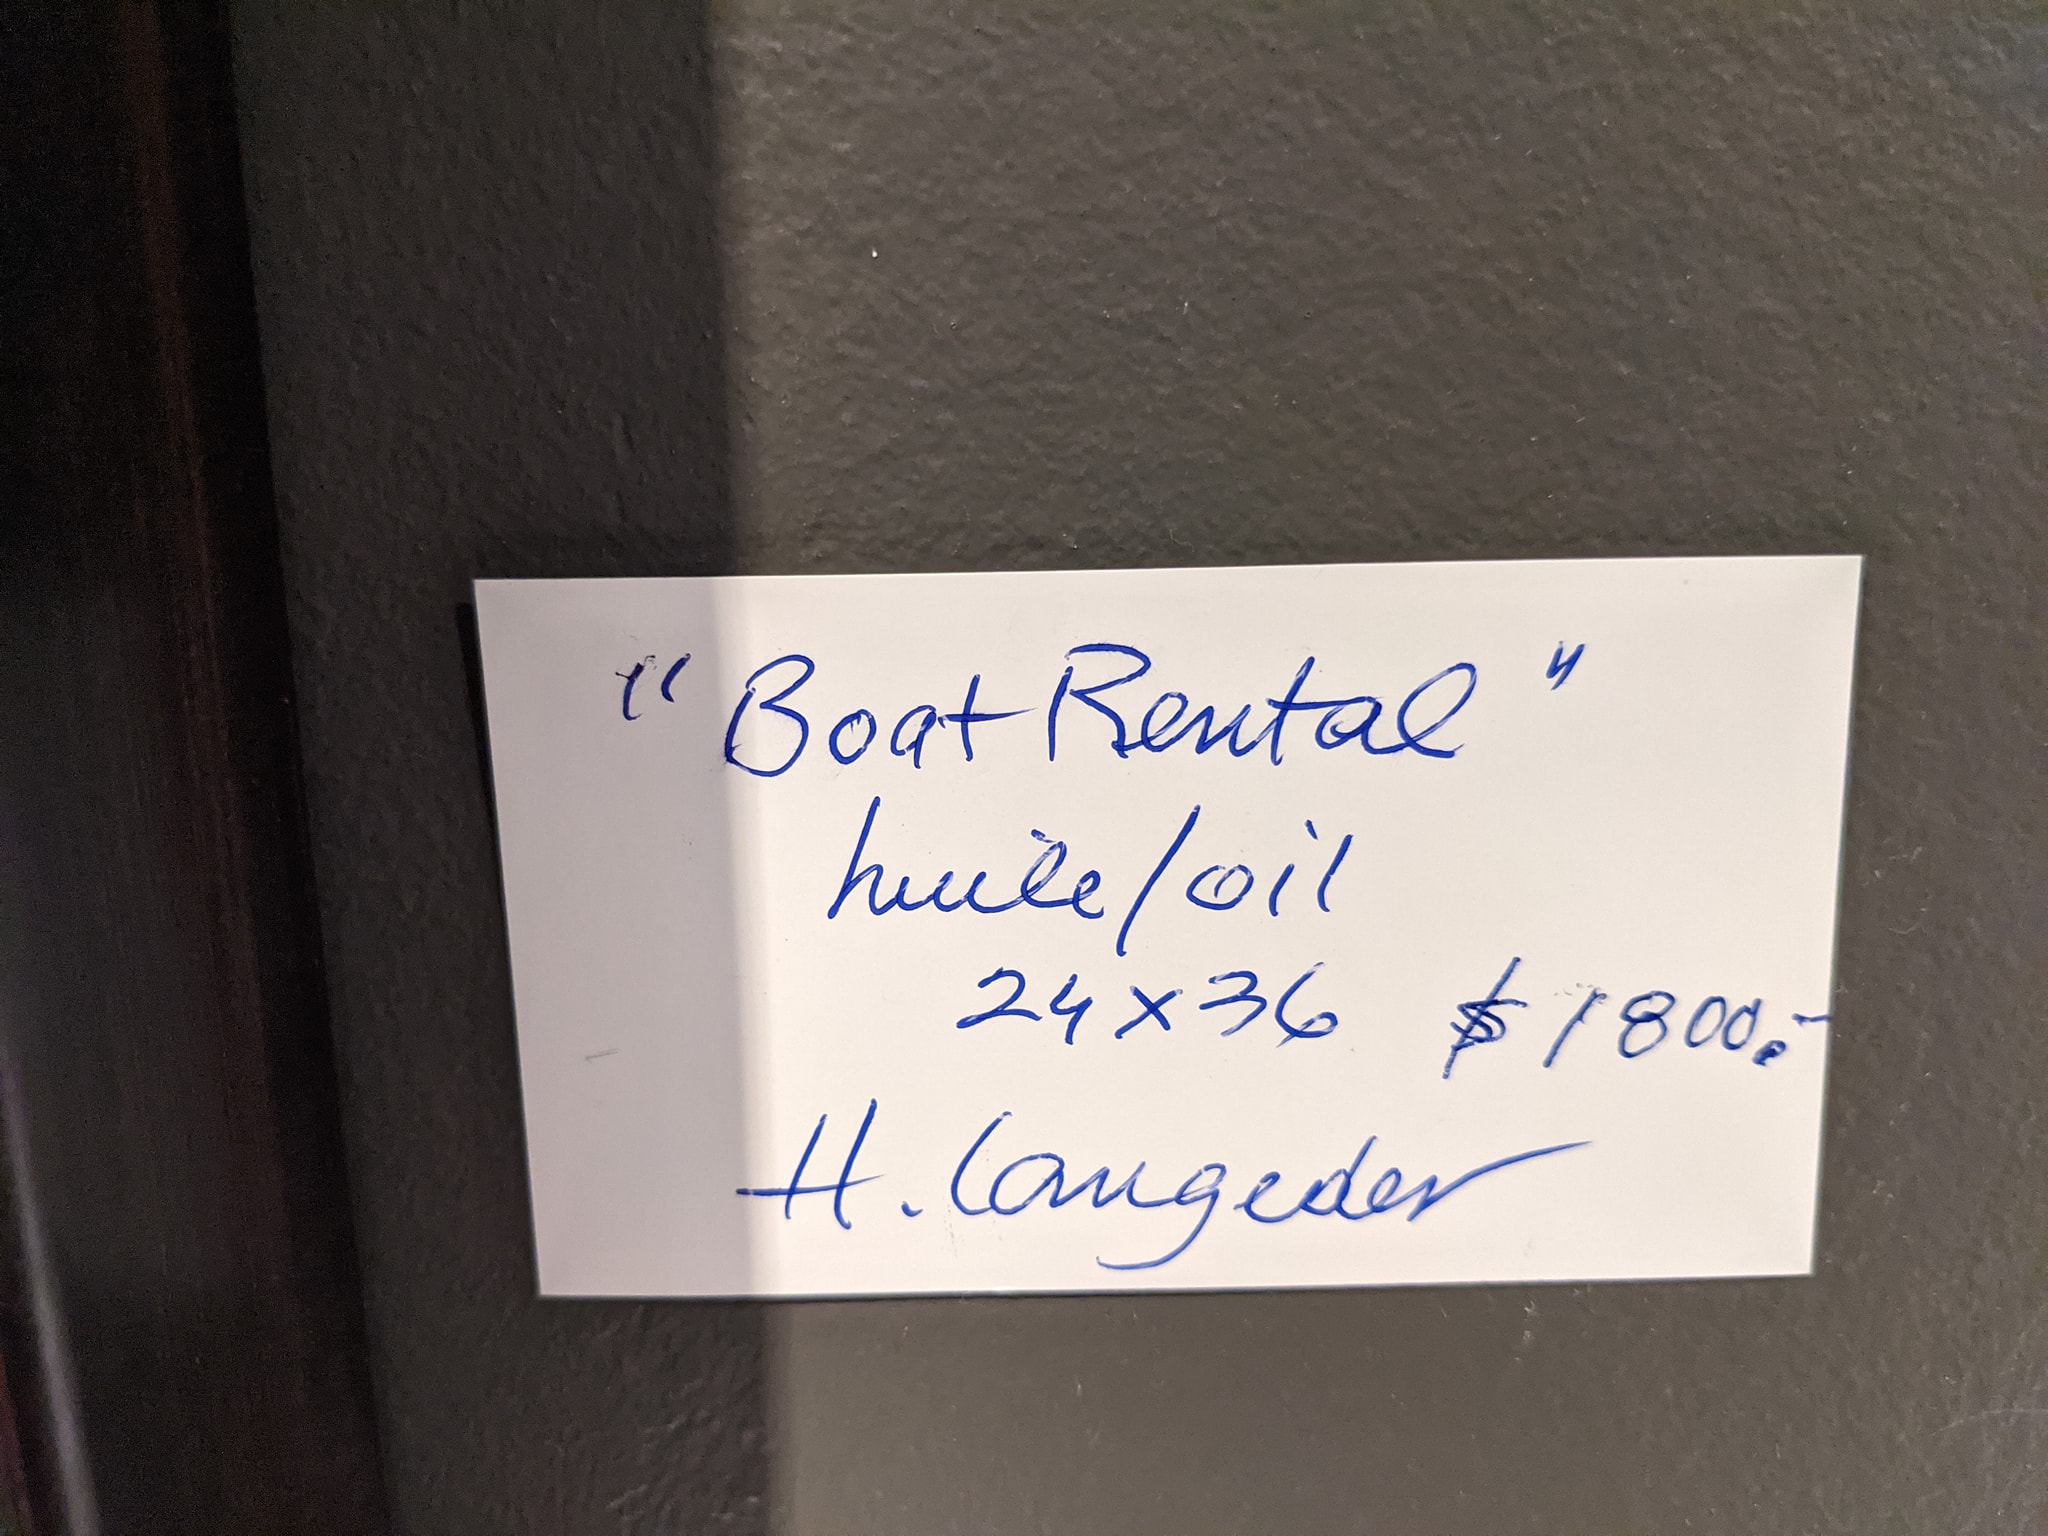 "Boat Rental"
huile/oil
24x36 $1800.-
H. Langeder